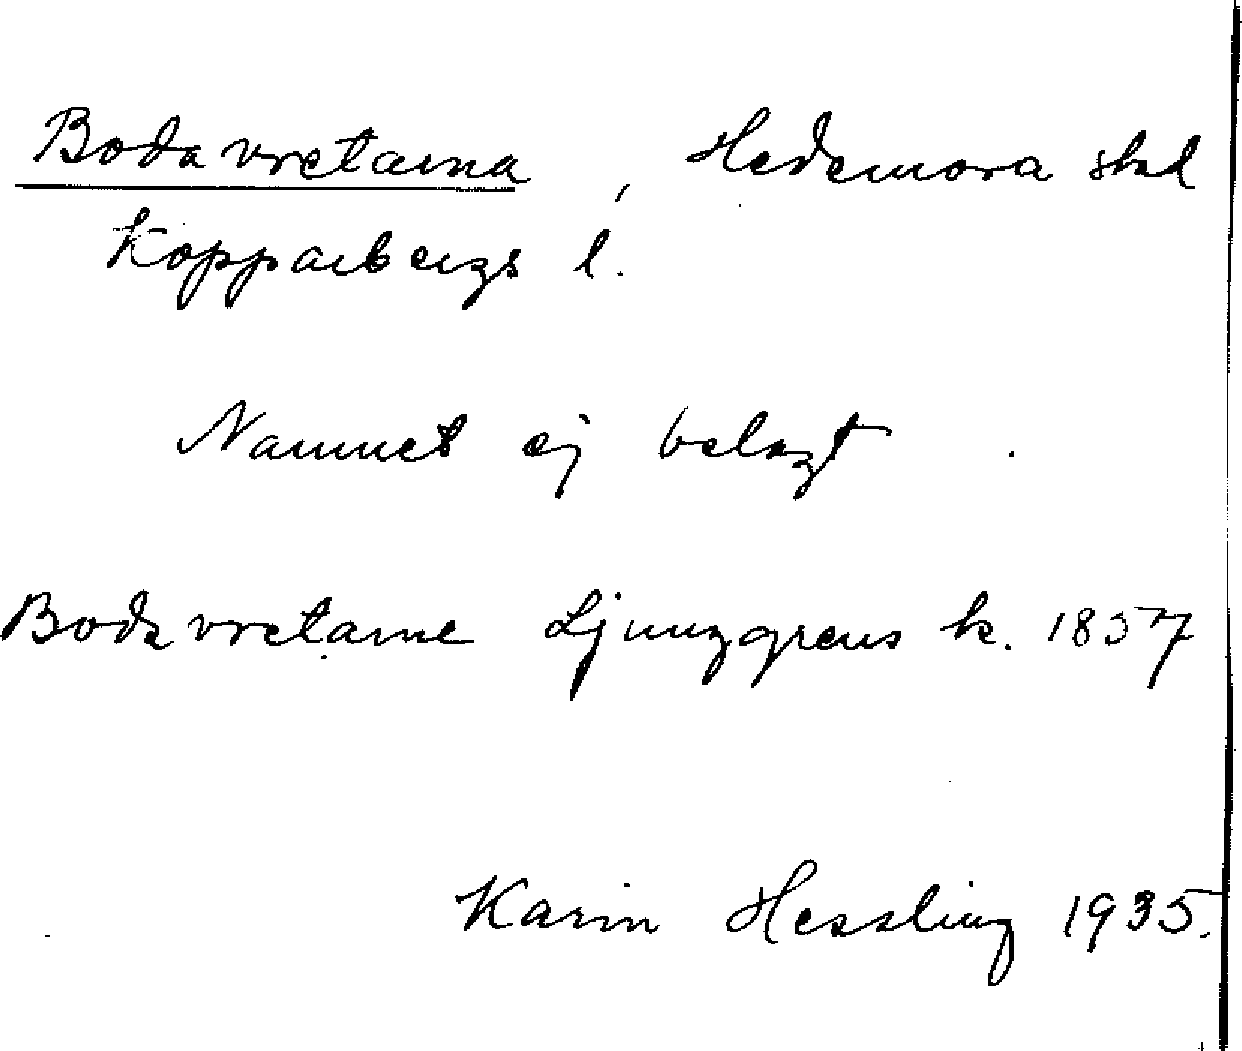 Bodavretarna, Hedemora stad
Kopparbergs l.
Namnet ej belagt.
Bodavretarne Ljunggrens k. 1857
Karin Hessling 1935.